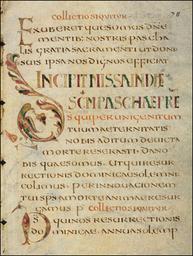 EXUBERET QUESUMUS DNE
MENTIB: NOSTRIS PASCHA
LIS GRATIA SACRAMENTI UT DONIS
SUIS IPSA NOS DIGNOS OFFICIAT
INCIPIT MISSA IN DIE
SCM PASCHAE
DS QUI PER UNIGENITUM
TUUM AETERNITATIS
NOBIS ADITUM DEVICTA
MORTE RESERASTI. DA NO
BIS QUAESUMUS. UT QUI RESUR
RECTIONIS DOMINICAE SOLEMNIA
COLIMUS. PER INNOVATIONEM
TUI SPS A MORTE ANIMAE RESUR
GAMUS P
DS QUI NOS RESURRECTIONIS
DOMINICAE ANNUA SOLEMP